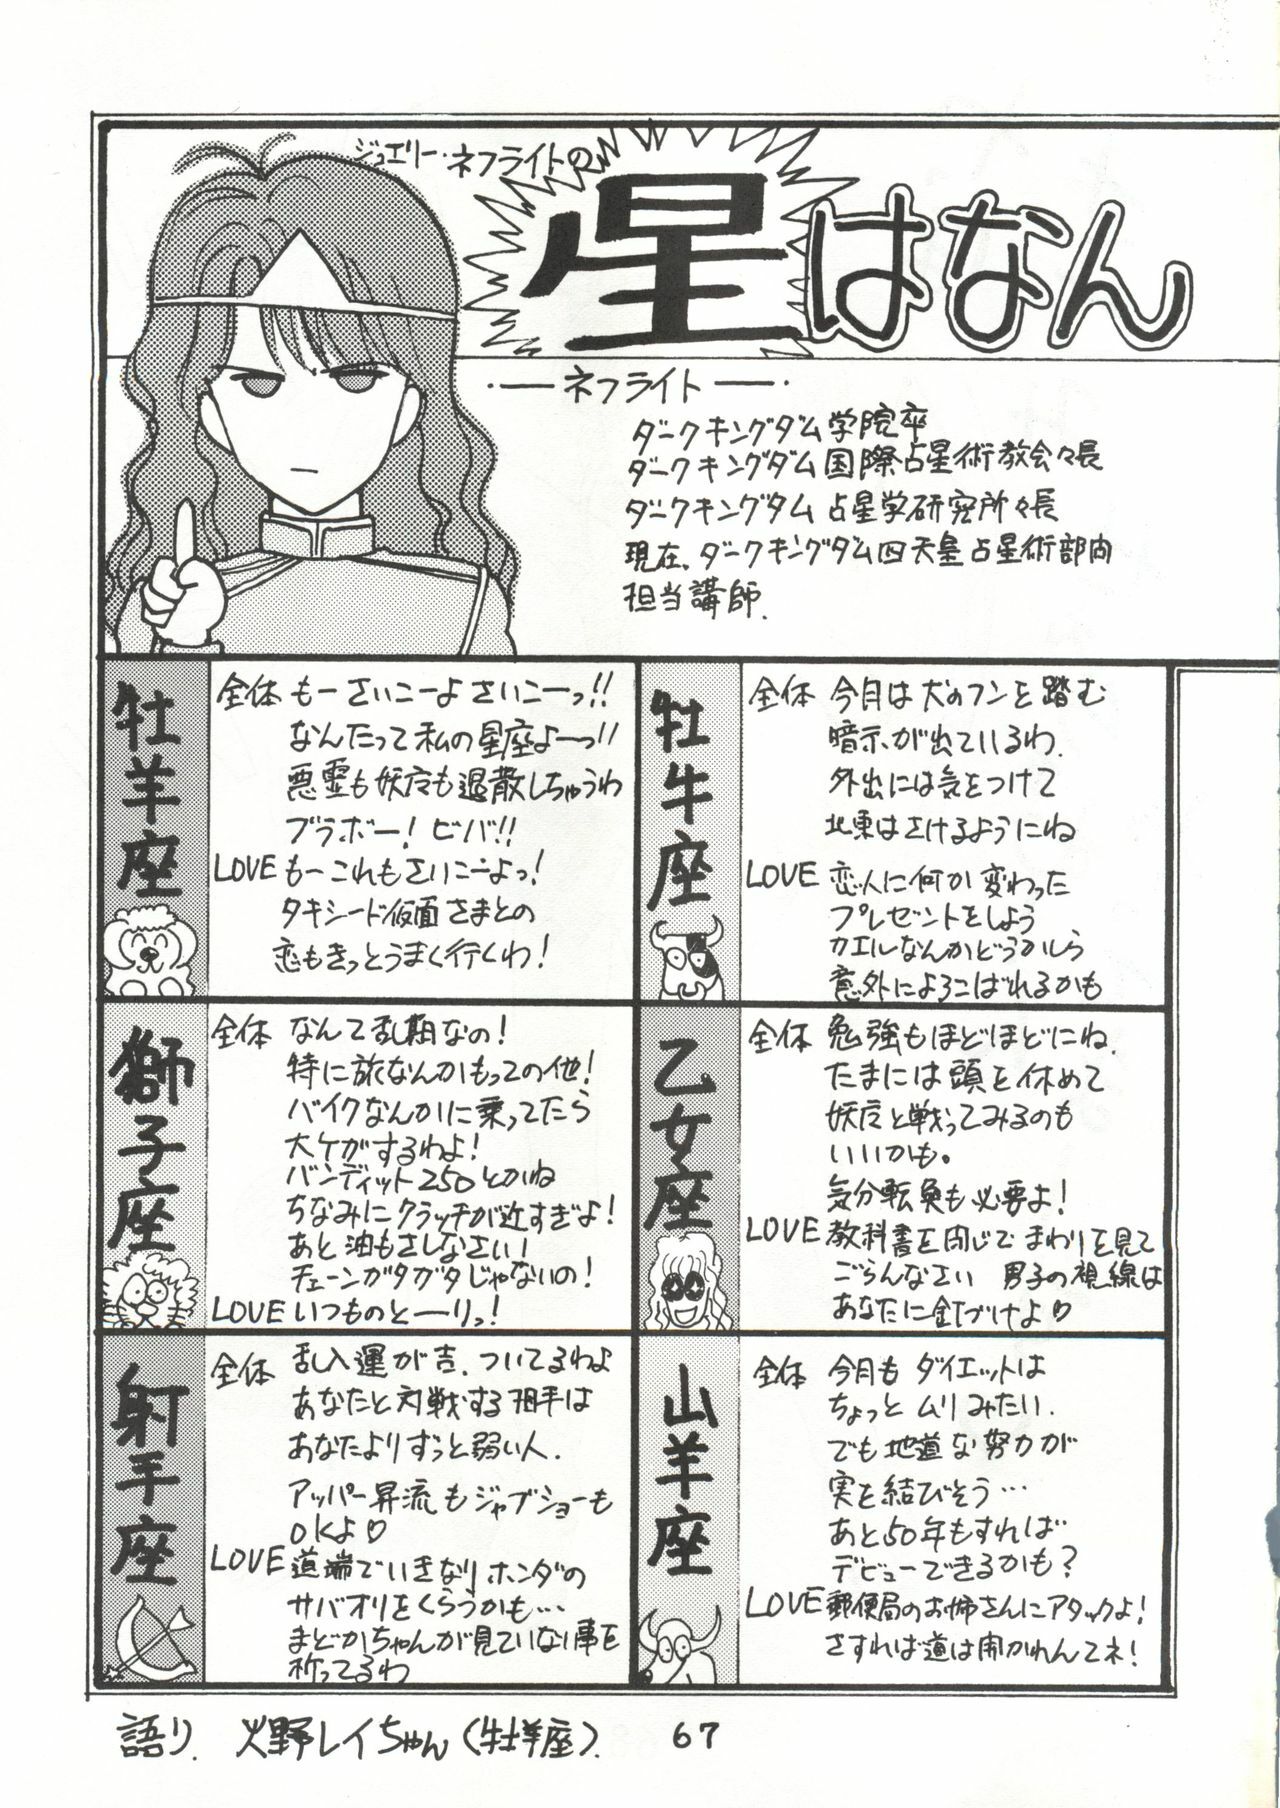 ジュエリー・ネフライトの
星はなん
・── ネフライト ──・
ダークキングダム学院卒
ダークキングダム国際占星術教会々長
ダークキングダム占星学研究所々長
現在、ダークキングダム四天皇占星術部向
担当講師.
牡羊座
全体 もーさいこーよさいこーっ!!
なんたって私の星座よーっ!!
悪霊も妖魔も退散しちゃうわ
ブラボー! ビバ!!
LOVE もーこれもさいこーよっ!
タキシード仮面さまとの
恋もきっとうまく行くわ!
牡牛座
全体 今月は犬のフンを踏む
暗示が出ているわ.
外出には気をつけて
北東はさけるようにね
LOVE 恋人に何か変わった
プレゼントをしよう
カエルなんかどうかしら
意外によろこばれるかも
獅子座
全体 なんて乱期なの!
特に旅なんかもっての他!
バイクなんかに乗ってたら
大ケガするわよ!
バンディット250とかね
ちなみにクラッチが近すぎよ!
あと油もさしなさい!
チェーンガタガタじゃないの!
LOVE いつものとーーりっ!
乙女座
全体 勉強もほどほどにね.
たまには頭を休めて
妖魔と戦ってみるのも
いいかも。
気分転換も必要よ!
LOVE 教科書を閉じてまわりを見て
ごらんなさい 男子の視線は
あなたに釘づけよ♡
射手座
全体 乱入運が吉.ついてるわよ
あなたと対戦する相手は
あなたよりずっと弱い人.
アッパー昇流もジャブショーも
OKよ♡
LOVE 道端でいきなりホンダの
サバオリをくらうかも…
まどかちゃんが見ていない事を
祈ってるわ
山羊座
全体 今月もダイエットは
ちょっとムリみたい.
でも地道な努力が
実を結びそう…
あと50年もすれば
デビューできるかも?
LOVE 郵便局のお姉さんにアタックよ!
さすれば道は開かれんてネ!
語り. 火野レイちゃん(牡羊座).
67